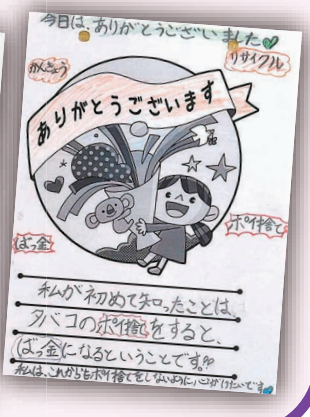 今日は、ありがとうございました
リサイクル
かんきょう
ありがとうございます
ポイ捨て
ばっ金
私が初めて知ったことは、
タバコのポイ捨てをすると、
ばっ金になるということです!!
私は、これからもポイ捨てをしないように、心がけたいです